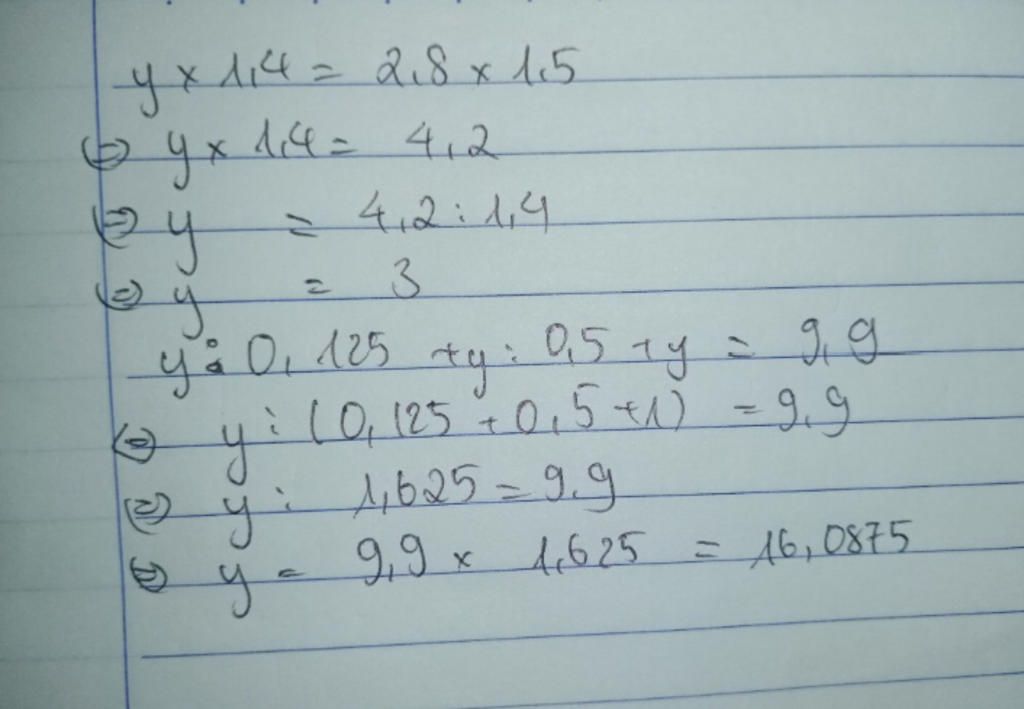 y x 1,4 = 2,8 x 1,5
(=) y x 1,4 = 4,2
(=) y = 4,2 : 1,4
(=) y = 3
y : 0,125 + y : 0,5 + y = 9,9
(=) y : (0,125 + 0,5 + 1) = 9,9
(=) y : 1,625 = 9,9
(=) y = 9,9 x 1,625 = 16,0875